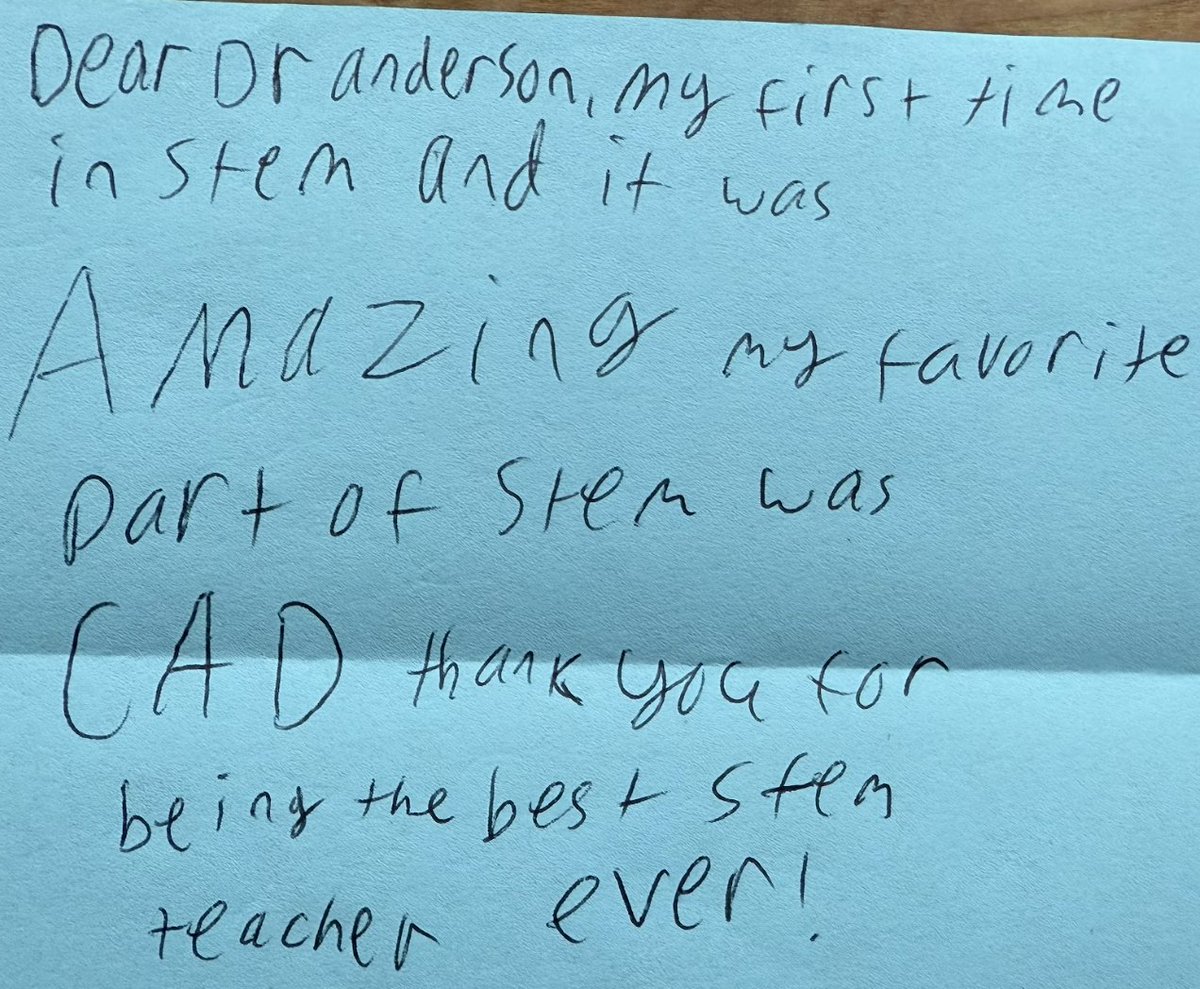 Dear Dr anderson, my first time
in stem and it was
Amazing my favorite
part of stem was
CAD thank you for
being the best stem
teacher ever!